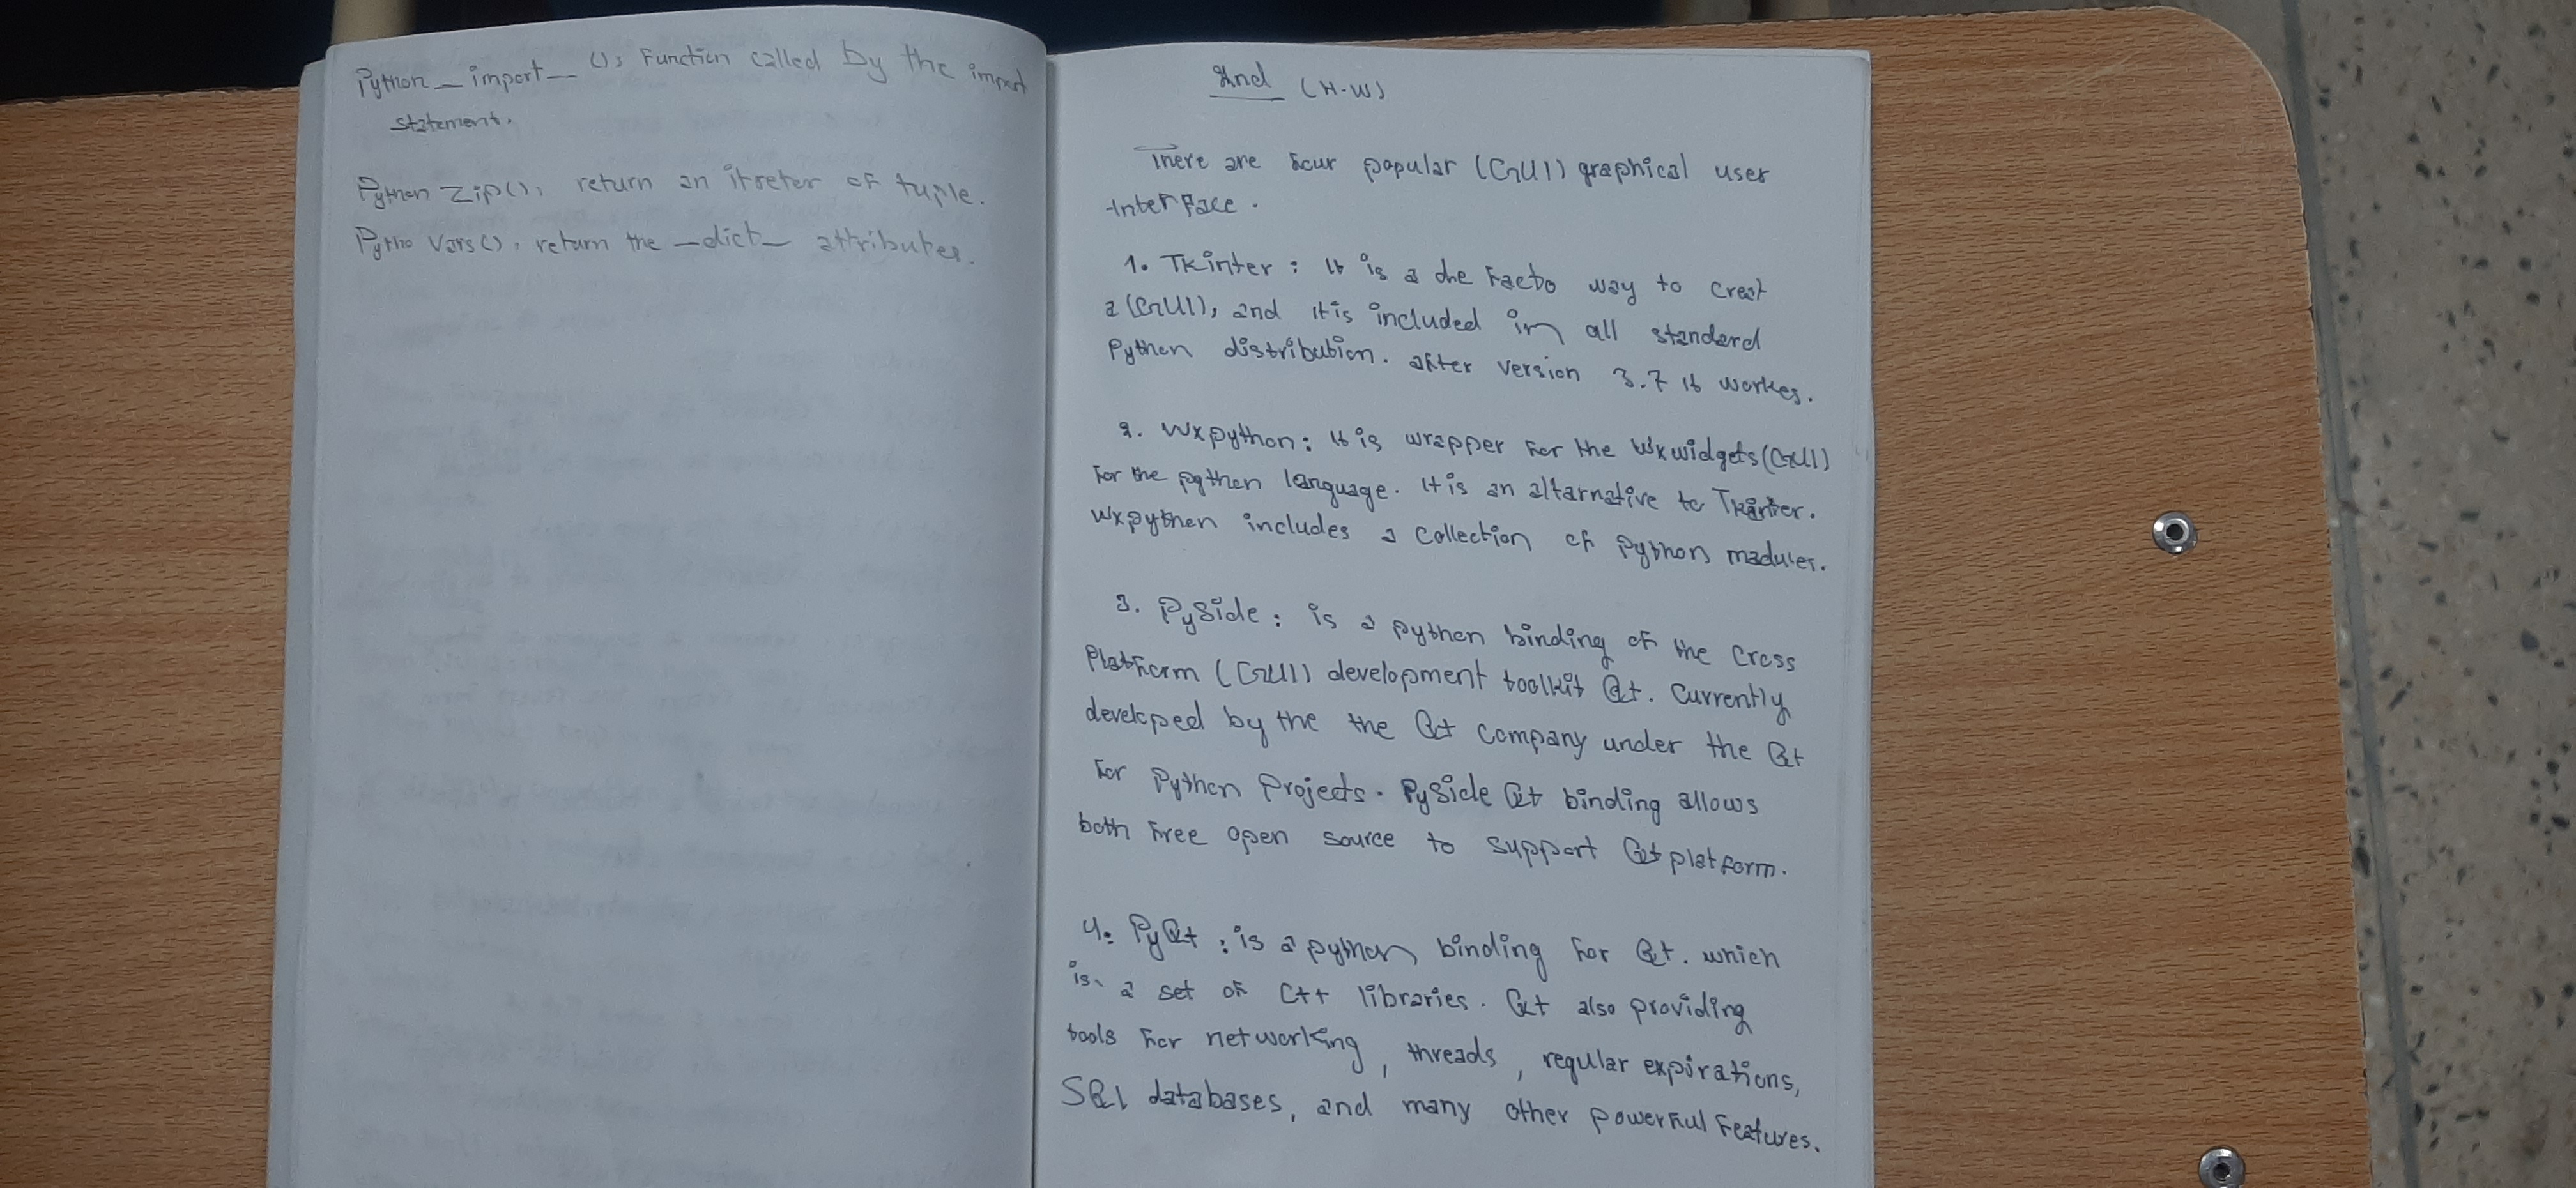 Python_import_(): Function called by the import
statement.
Python Zip(), return an itretor of tuple.
Pytho Vars(), return the _dict_ attributes.
2nd (H.W)
There are four popular (GUI) graphical user
-Interface.
1. Tkinter: it is a de facto way to creat
a (GUI), and it is included in all standard
Python distribution. after version 3.7 it workes.
2. Wxpython: it is wrapper for the wxwidgets (GUI)
for the python language. it is an altarnative to Tkinter.
Wxpython includes a collection of python madules.
3. PySide: is a python binding of the Cross
Platform (GUI) development toolkit Qt. Currently
developed by the the Qt company under the Qt
for Python Projects. PySide Qt binding allows
both free open source to support Qt platform.
4. PyQt: is a python binding for Qt. which
is, a set of C++ libraries. Qt also providing
tools for networking, threads, regular expirations,
SQl databases, and many other powerful features.